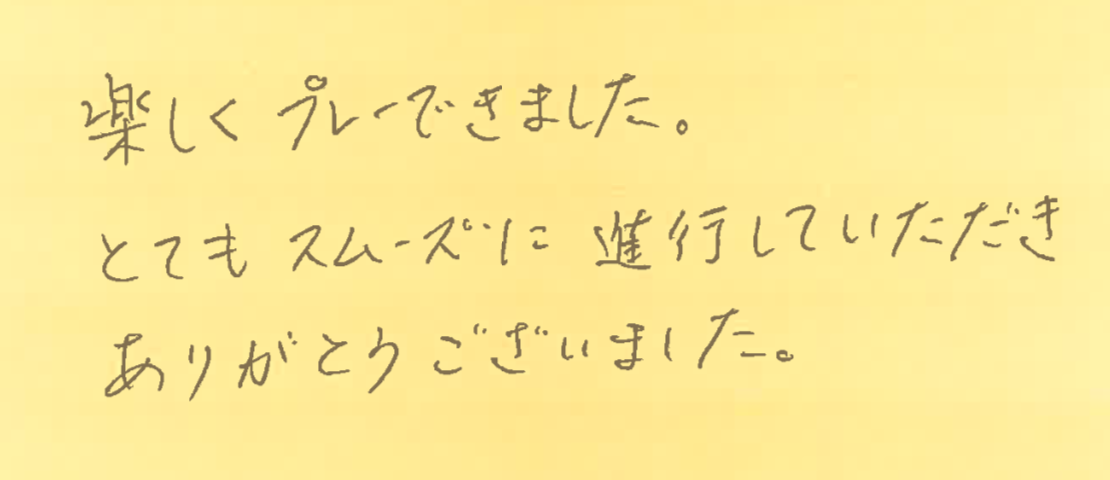 楽しくプレーできました。
とてもスムーズに進行していただき
ありがとうございました。